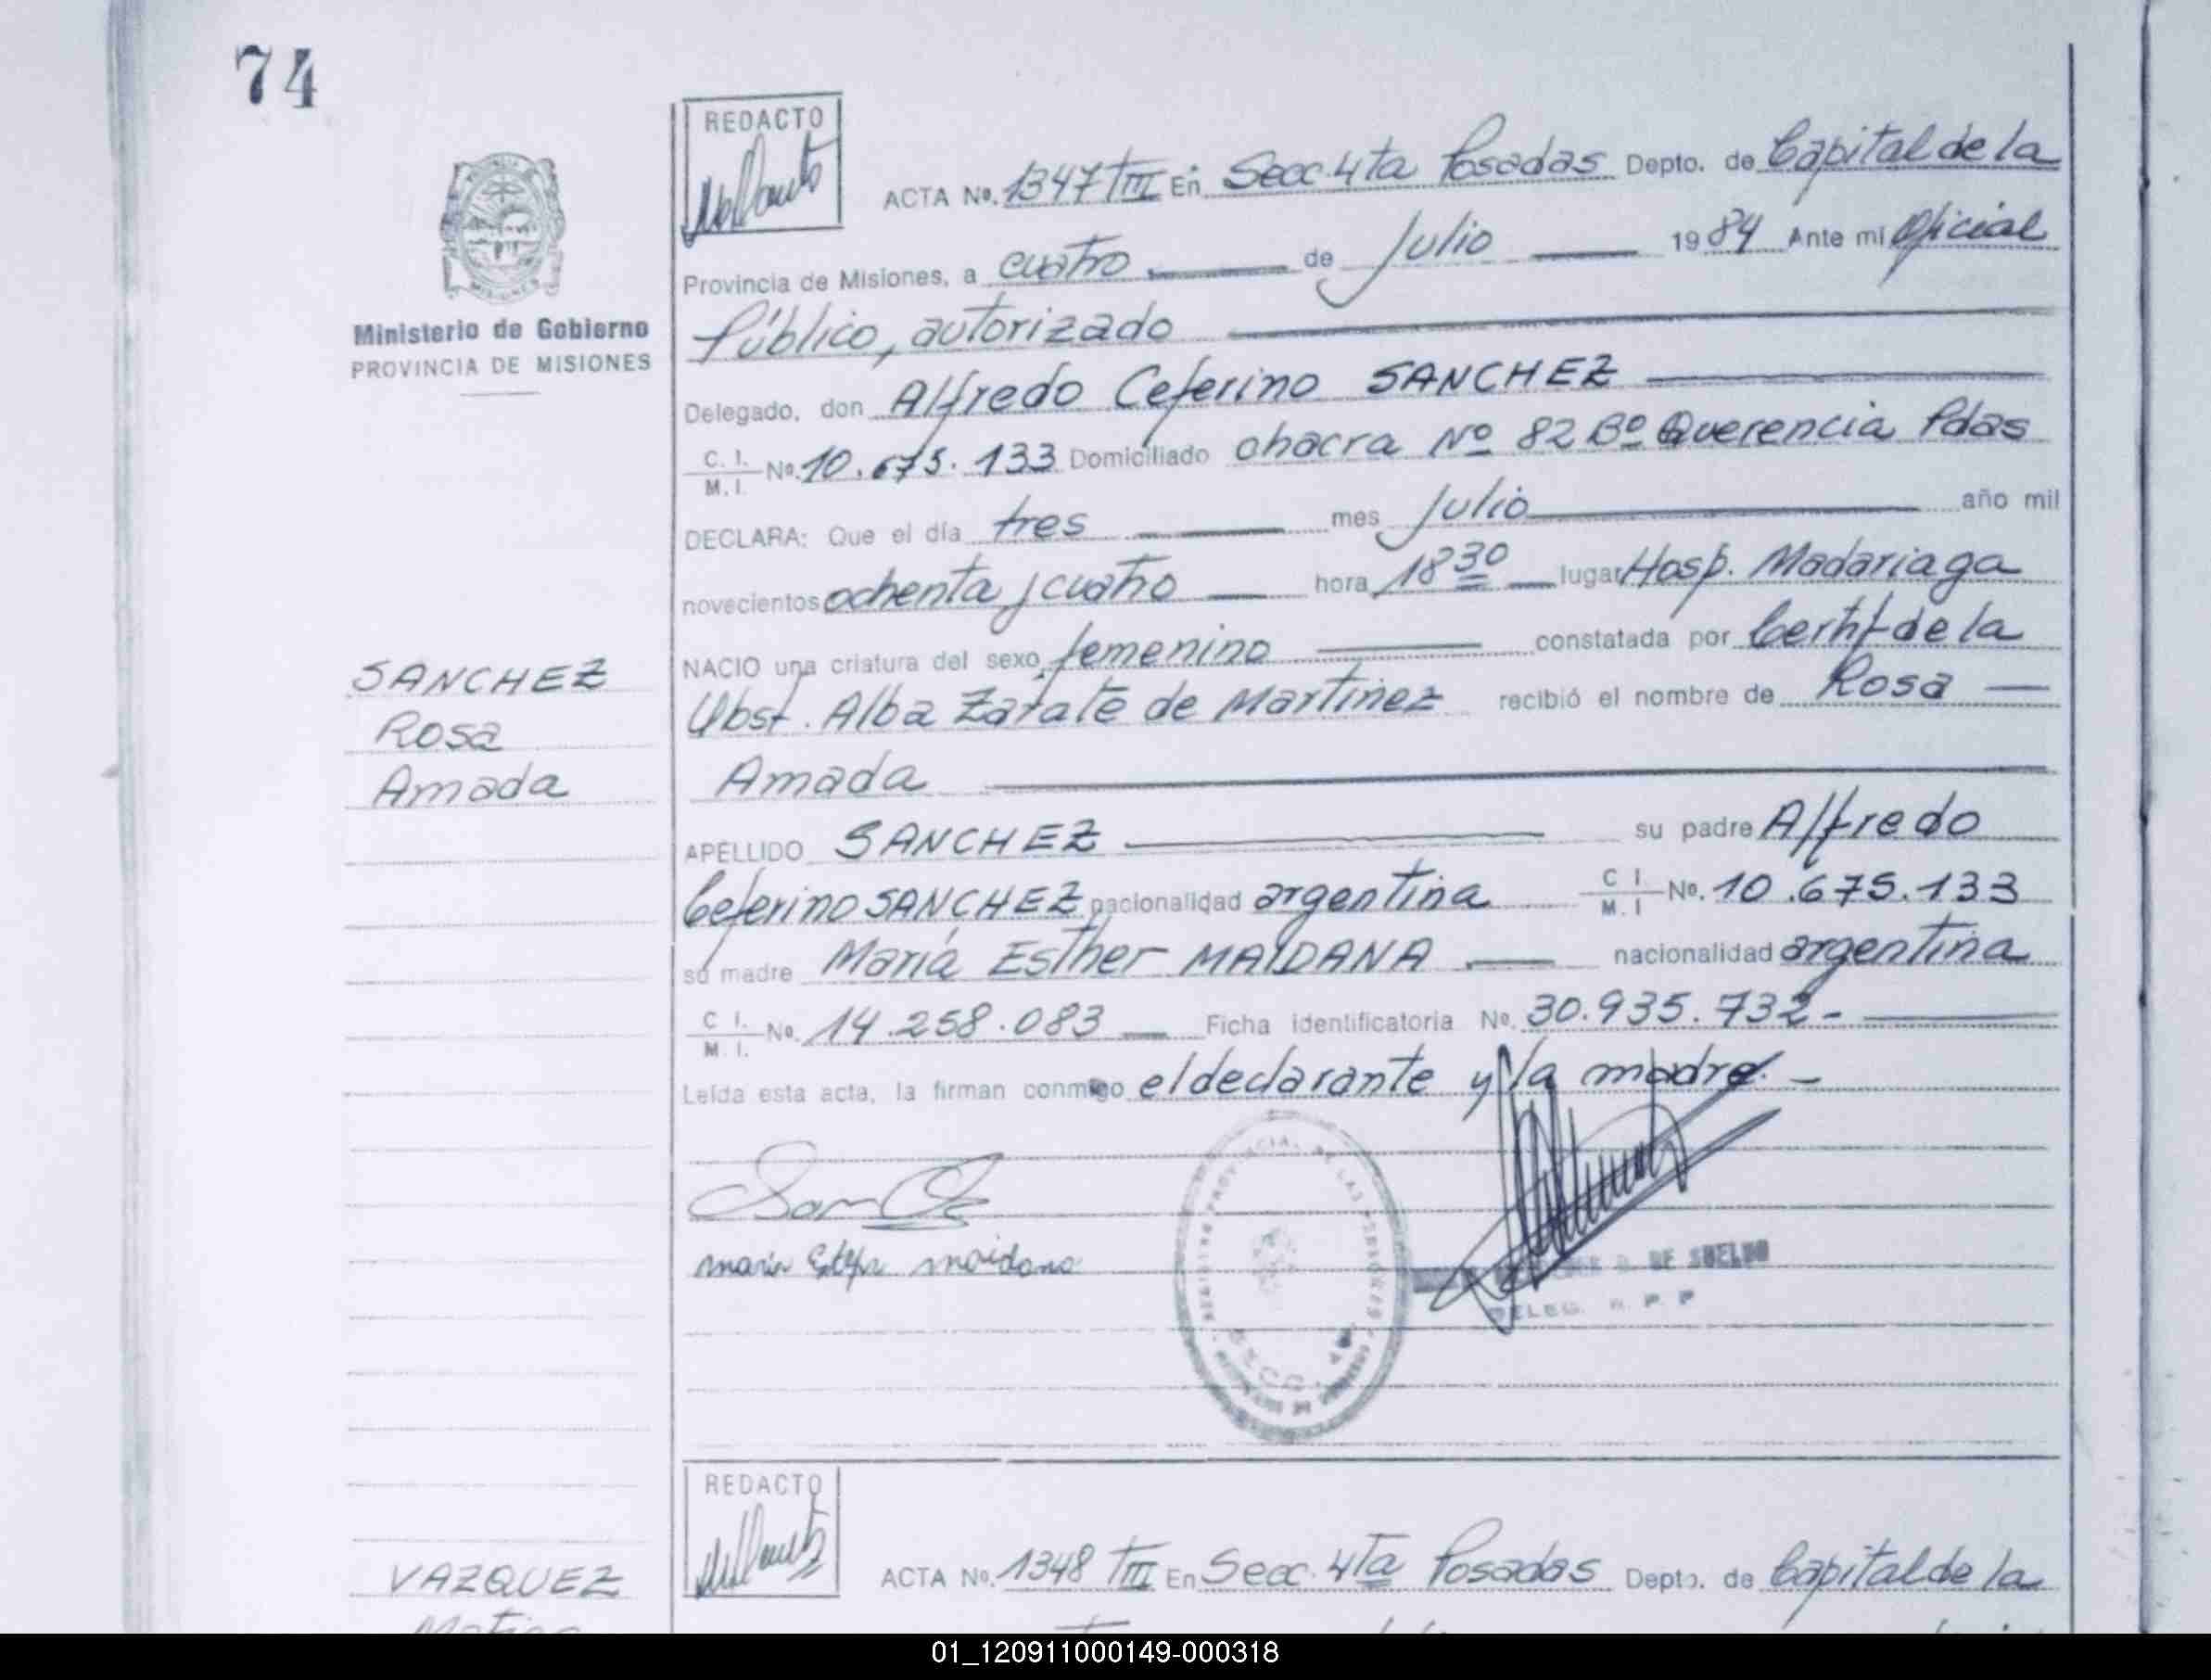 74
REDACTO
ACTA Nº. 1347 TIII En Secc 4ta Posadas Depto. de Capital de la
Provincia de Misiones, a cuatro de Julio 1984 Ante mi Oficial
Ministerio de Gobierno
PROVINCIA DE MISIONES
Público, autorizado
Delegado, don Alfredo Ceferino SANCHEZ
C. I. M. I. Nº. 10.675.133 Domiciliado chacra Nº 82 Bº Querencia Pdas
DECLARA: Que el día tres mes Julio año mil
novecientos ochenta y cuatro hora 18 30 lugar Hosp. Madariaga
NACIO una criatura del sexo femenino constatada por Certif de la
SANCHEZ
Rosa
Amada
Obst. Alba Zarate de Martinez recibió el nombre de Rosa
Amada
APELLIDO SANCHEZ su padre Alfredo
Ceferino SANCHEZ nacionalidad argentina C I M. I Nº. 10.675.133
su madre María Esther MAIDANA nacionalidad argentina
C I. M. I. Nº. 14.258.083 Ficha identificatoria Nº. 30.935.732-
Leída esta acta, la firman conmigo el declarante y la madre.-
maria Esther maidana
DE SBELUO
DELEG. R. P. P
REDACTO
VAZQUEZ
ACTA Nº. 1348 TIII En Secc. 4Ta Posadas Depto. de Capital de la
01_120911000149-000318